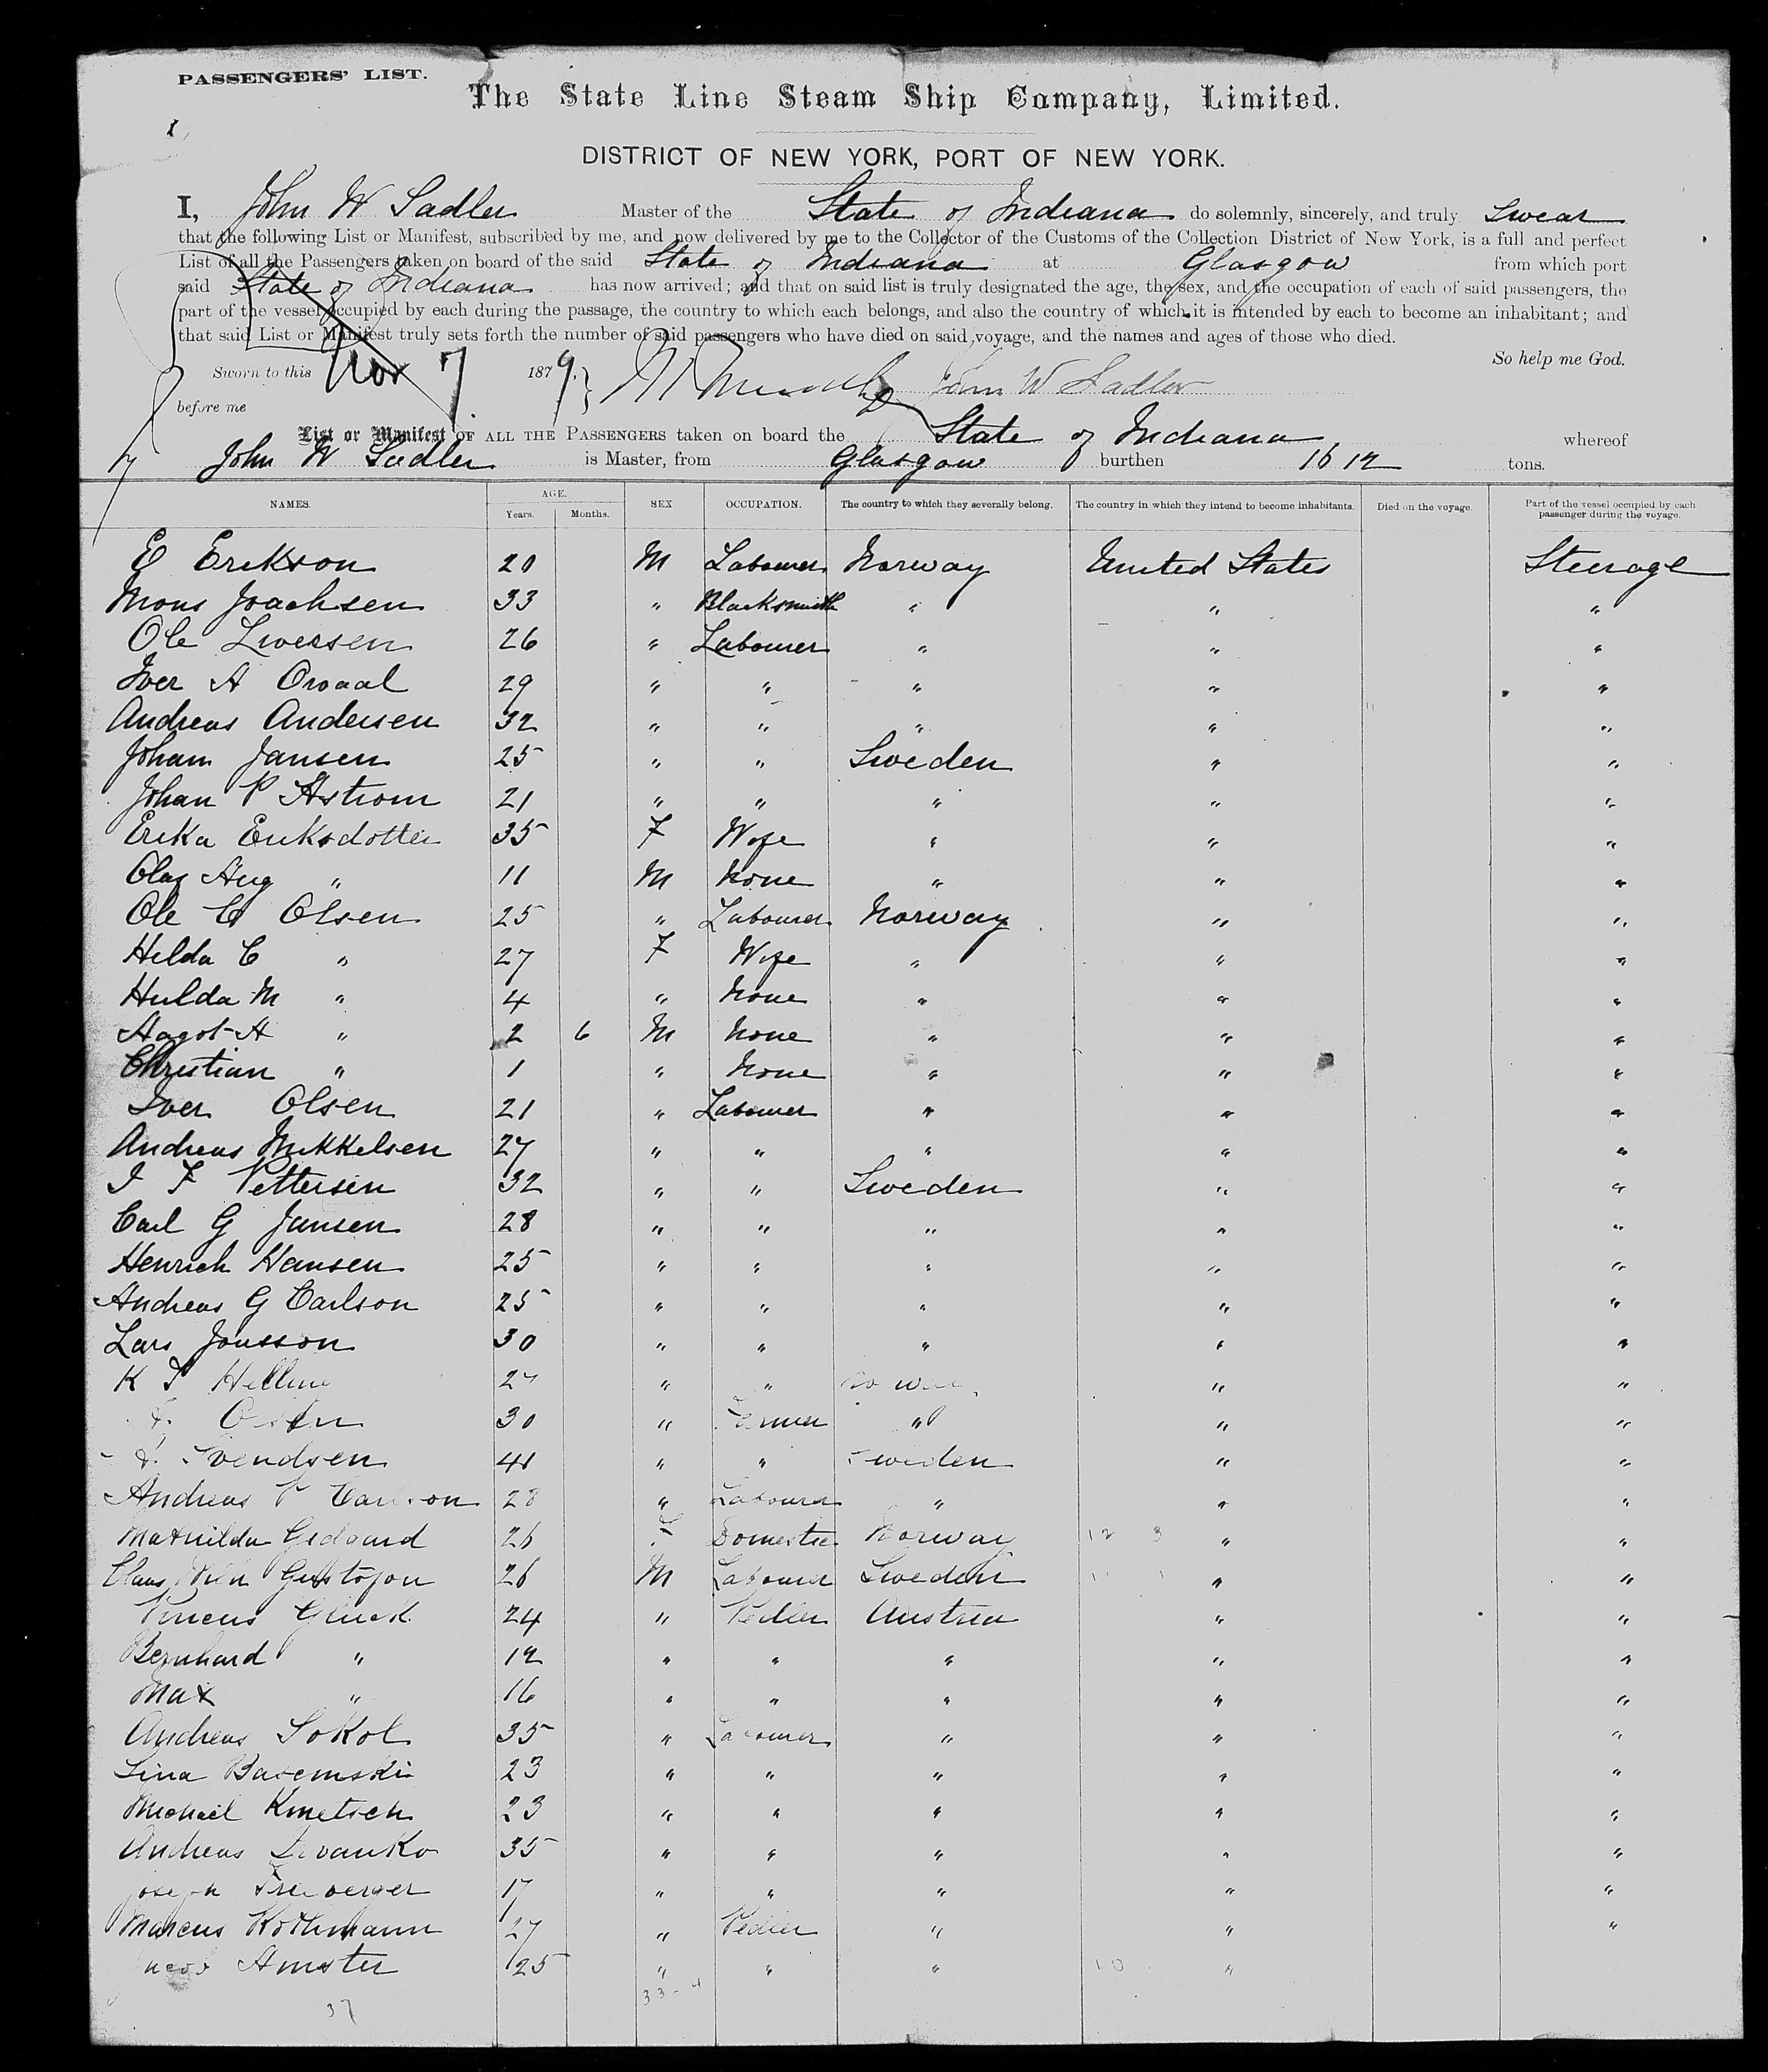 PASSENGERS' LIST.
1,
The State Line Steam Ship Company, Limited.
DISTRICT OF NEW YORK, PORT OF NEW YORK.
I, John W Sadler Master of the State of Indiana do solemnly, sincerely, and truly Swear
that the following List or Manifest, subscribed by me, and now delivered by me to the Collector of the Customs of the Collection District of New York, is a full and perfect
List of all the Passengers taken on board of the said State of Indiana at Glasgow from which port
said State of Indiana has now arrived; and that on said list is truly designated the age, the sex, and the occupation of each of said passengers, the
part of the vessel occupied by each during the passage, the country to which each belongs, and also the country of which it is intended by each to become an inhabitant; and
that said List or Manifest truly sets forth the number of said passengers who have died on said voyage, and the names and ages of those who died.
So help me God.
Sworn to this Nov 7 1879. John W Sadler
before me
List or Manifest OF ALL THE PASSENGERS taken on board the State of Indiana, whereof
John W Sadler is Master, from Glasgow burthen 1612 tons.
NAMES. AGE. Years. Months. SEX OCCUPATION. The country to which they severally belong. The country in which they intend to become inhabitants. Died on the voyage. Part of the vessel occupied by each passenger during the voyage.
E Erikson 20 M Labourer Norway United States Steerage
Mons Joachsen 33 " Blacksmith " " "
Ole Iwersen 26 " Labourer " " "
Iver A Orvaal 29 " " " " "
Andreas Andersen 32 " " " " "
Johan Jansen 25 " " Sweden " "
Johan P Astrom 21 " " " " "
Erika Eriksdotter 35 F Wife " " "
Olaf Aug " 11 M None " " "
Ole C Olsen 25 " Labourer Norway " "
Hilda C " 27 F Wife " " "
Hulda M " 4 " None " " "
Aagot A " 2 6 M None " " "
Christian " 1 " None " " "
Iver Olsen 21 " Labourer " " "
Andreas Mikkelsen 27 " " " " "
I F Pettersen 32 " " Sweden " "
Carl G Jansen 28 " " " " "
Henrich Hansen 25 " " " " "
Andreas G Carlson 25 " " " " "
Lars Jonsson 30 " " " " "
K " " " "
30 " Farmer " " "
Svendsen 41 " " Sweden " "
Andreas P Carlson 28 " Labourer " " "
Mathilda Gidaard 26 F Domestic Norway " "
Claus Gustafson 26 M Labourer Sweden " "
Pincus Gluck 24 " Pedler Austria " "
Bernhard " 12 " " " " "
Max " 16 " " " " "
Andreas Sokol 35 " Labourer " " "
Lina Basemski 23 " " " " "
Michael Kmetsch 23 " " " " "
Andreas 35 " " " " "
Joseph Freiberger 17 " " " " "
Marcus Rothmann 27 " Pedler " " "
Amster 25 " " " "
33-4
37